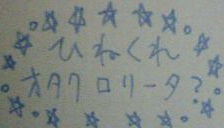 ひねくれ
オタクロリータ?